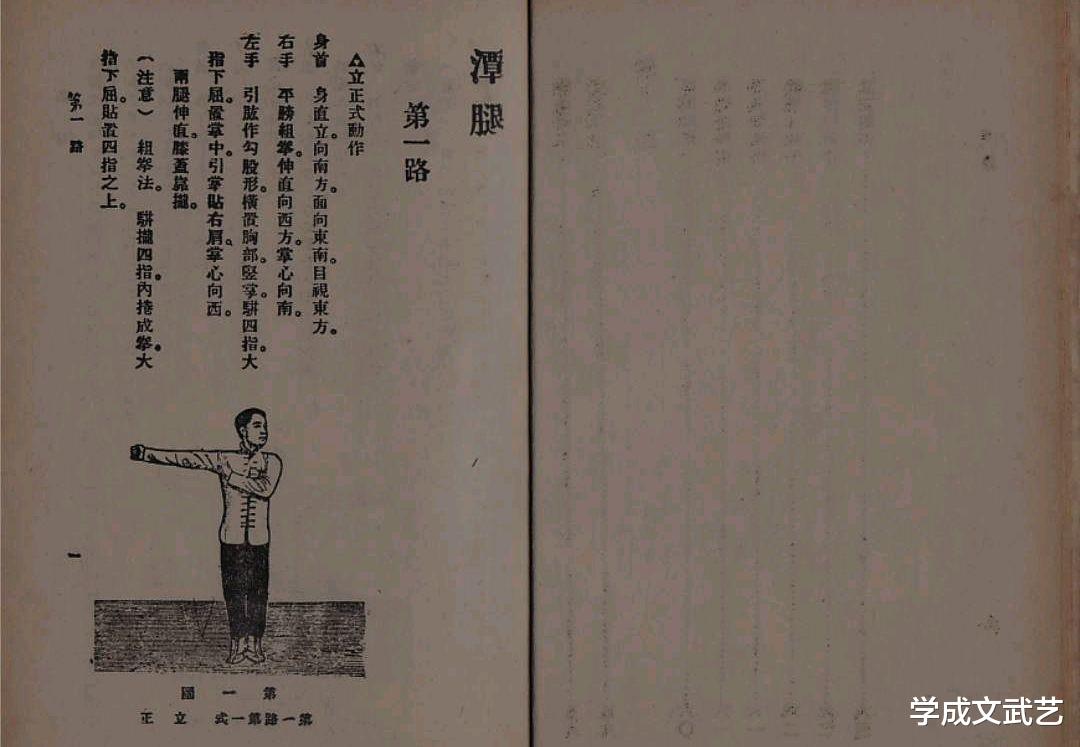 潭腿
第一路
▲立正式動作
身首　身直立向南方。面向東南。目視東方。
右手　平膀組拳。伸直向西方。掌心向南。
左手　引肱作勾股形。橫置胸部。竪掌。騈四指。大
指下屈。置掌中。引掌貼右肩。掌心向西。
兩腿伸直。膝蓋靠攏。
（注意）　組拳法。騈攏四指。內捲成拳。大
指下屈。貼置四指之上。
第一路
一
第一圖
第一路第一式　立正
学成文武艺